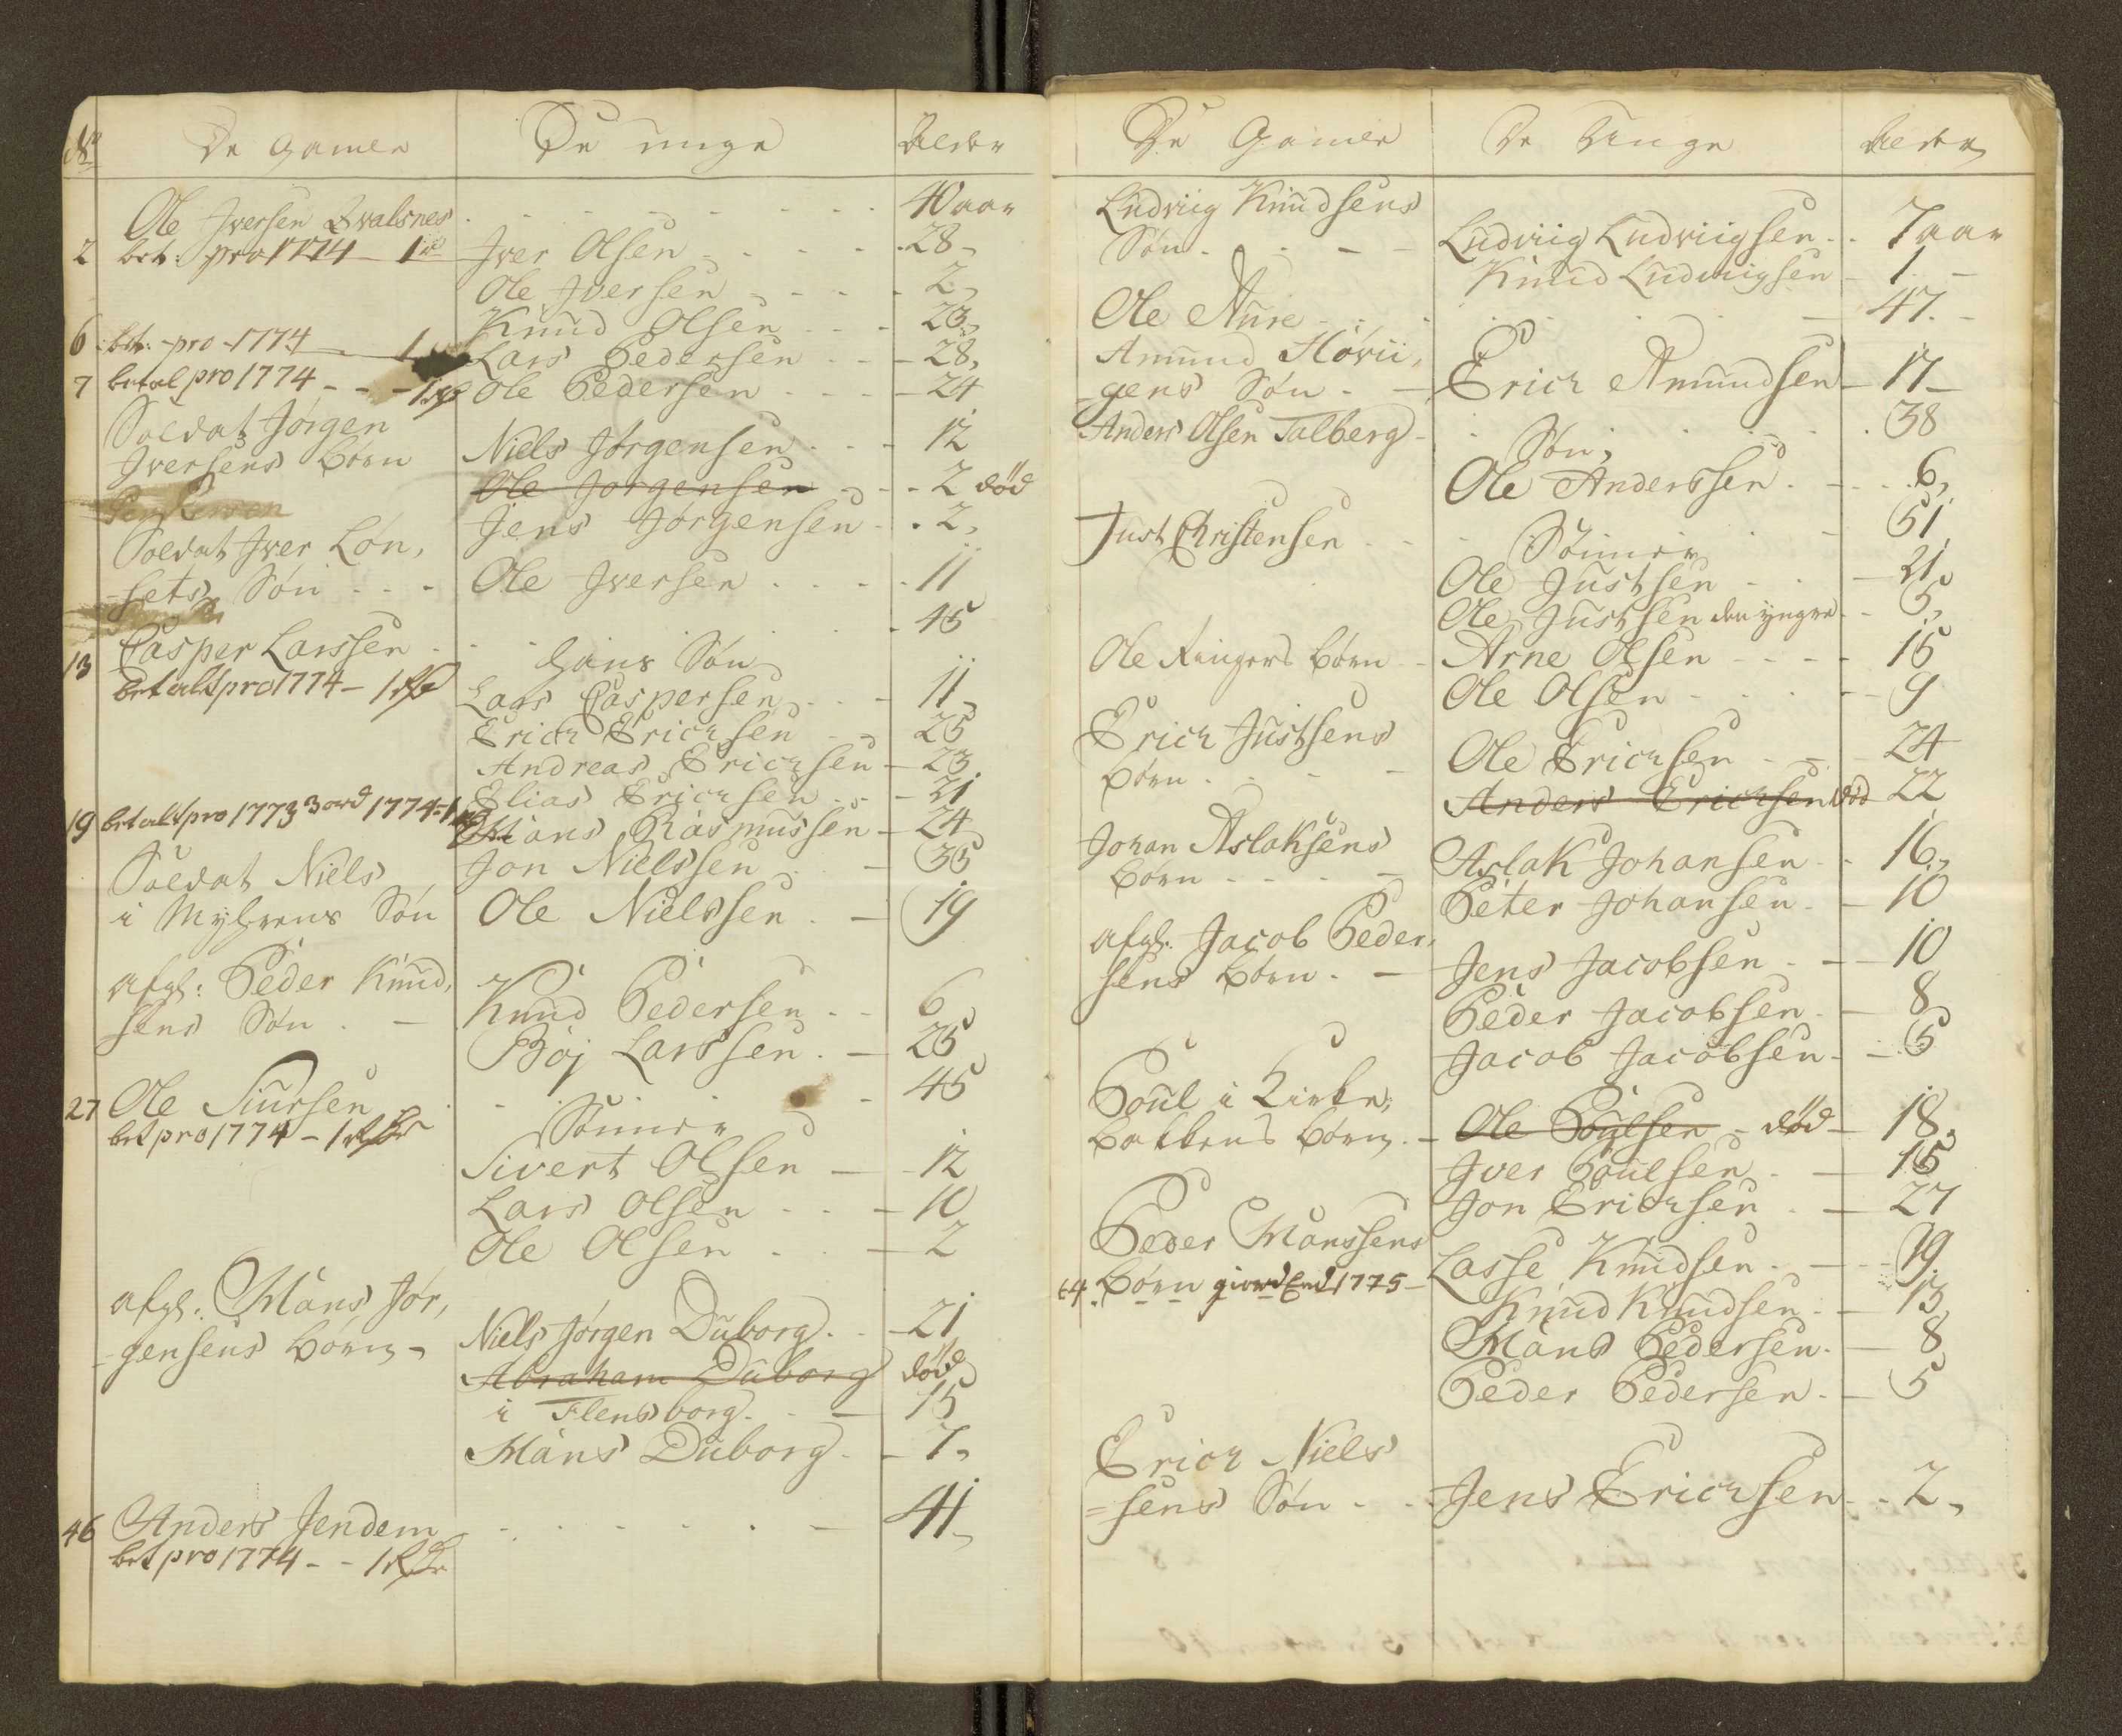 No De Gamle De unge Alder
Ole Iversen Qvalsnes - - - - - - - 40 aar
2 bet: pro 1774 - 1 rd Iver Olsen - - - 28
Ole Iversen - - - 2
Knud Olsen - - - 23
6 bet: pro 1774 - 1 Lars Pedersen - - 28
7 betal pro 1774 - - - 1 rdr Ole Pedersen - - - 24
Soldat Jørgen
Iversens Børn Niels Jørgensen - - - 12
Ole Jørgensen - - - 2 død
Jens Jørgensen - - 2
Soldat Iver Løn,
-sets Søn - - - Ole Iversen - - - - 11
13 Casper Larssen - - - - - - - 45
hans Søn
betalt pro 1774 - 1 rdr Lars Caspersen - - - 11
Erich Erichsen - - 25
Andreas Erichsen - 23
Elias Erichsen - - - 21
19 betalt pro 1773 3 ord 1774 - 1 Måns Rasmussen - 24
Soldat Niels Jon Nielssen - - 35
i Myhrens Søn Ole Nielssen - - 19
afgl: Peder Knud,
sens Søn - - Knud Pedersen - - 6
Boj Larssen - - 25
27 Ole Siursen - - - - - - 45
bet pro 1774 - 1 rdr Sønner
Sivert Olsen - - 12
Lars Olsen - - - 10
Ole Olsen - - - 2
afgl: Måns Jør,
-gensens Børn - Niels Jørgen Duborg - - 21
Abraham Duborg død
i Flensborg - - 15
Måns Duborg - - 7
46 Anders Jendem - - - - - - 41
bet pro 1774 - - 1 rdr
De Gamle De Unge Alder
Ludviig Knudsens
Søn - - - - Ludviig Ludviigsen - - 7 aar
Knud Ludviigsen - 1 -
Ole Aure - - - - - - - 47 -
Amund Hovii,
-gens Søn - - Erich Amundsen - 17 -
Anders Olsen Talberg - - - - - - 38
Søn,
Ole Anderssen - - - 6
Just Christensen - - - - - - 51
Sønner
Ole Justsen - - - 21
Ole Justsen den yngre - - 5
Ole Ringers Børn - - Arne Olsen - - - - 15
Ole Olsen - - - - - 9
Erich Justsens
Børn - - - - Ole Erichsen - - - 24
Anders Erichsen død 22
Johan Aslaksens
Børn - - - - Aslak Johansen - - 16
Peter Johansen - - 10
afgl: Jacob Peder,
sens Børn - - Jens Jacobsen - - - 10
Peder Jacobsen - - 8
Jacob Jacobsen - - - 5
Poul i Kirke,
bakkens Børn - - Ole Poulsen - død - 18
Iver Poulsen - - 15
Jon Erichsen - - 27
Peder Månssens Lasse Knudsen - - - 19
Børn giord End 1775 - Knud Knudsen - - 13
Måns Pedersen - - 8
Peder Pedersen - - 5
Erich Niels
=sens Søn - - - Jens Erichsen - - 2